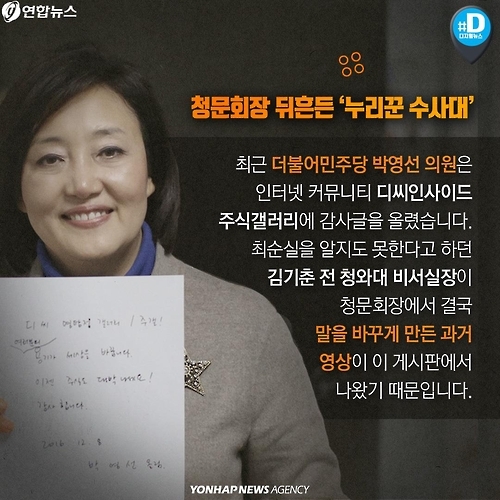 연합뉴스
#D
디지털뉴스
청문회장 뒤흔든 '누리꾼 수사대'
최근 더불어민주당 박영선 의원은
인터넷 커뮤니티 디씨인사이드
주식갤러리에 감사글을 올렸습니다.
최순실을 알지도 못한다고 하던
김기춘 전 청와대 비서실장이
청문회장에서 결국
말을 바꾸게 만든 과거
영상이 이 게시판에서
나왔기 때문입니다.
디씨 / 주갤!
여러분의
세상을 바꿉니다.
이젠 주식도 대박나세요!
감사합니다.
2016. 12. 8
박영선
YONHAP NEWS AGENCY